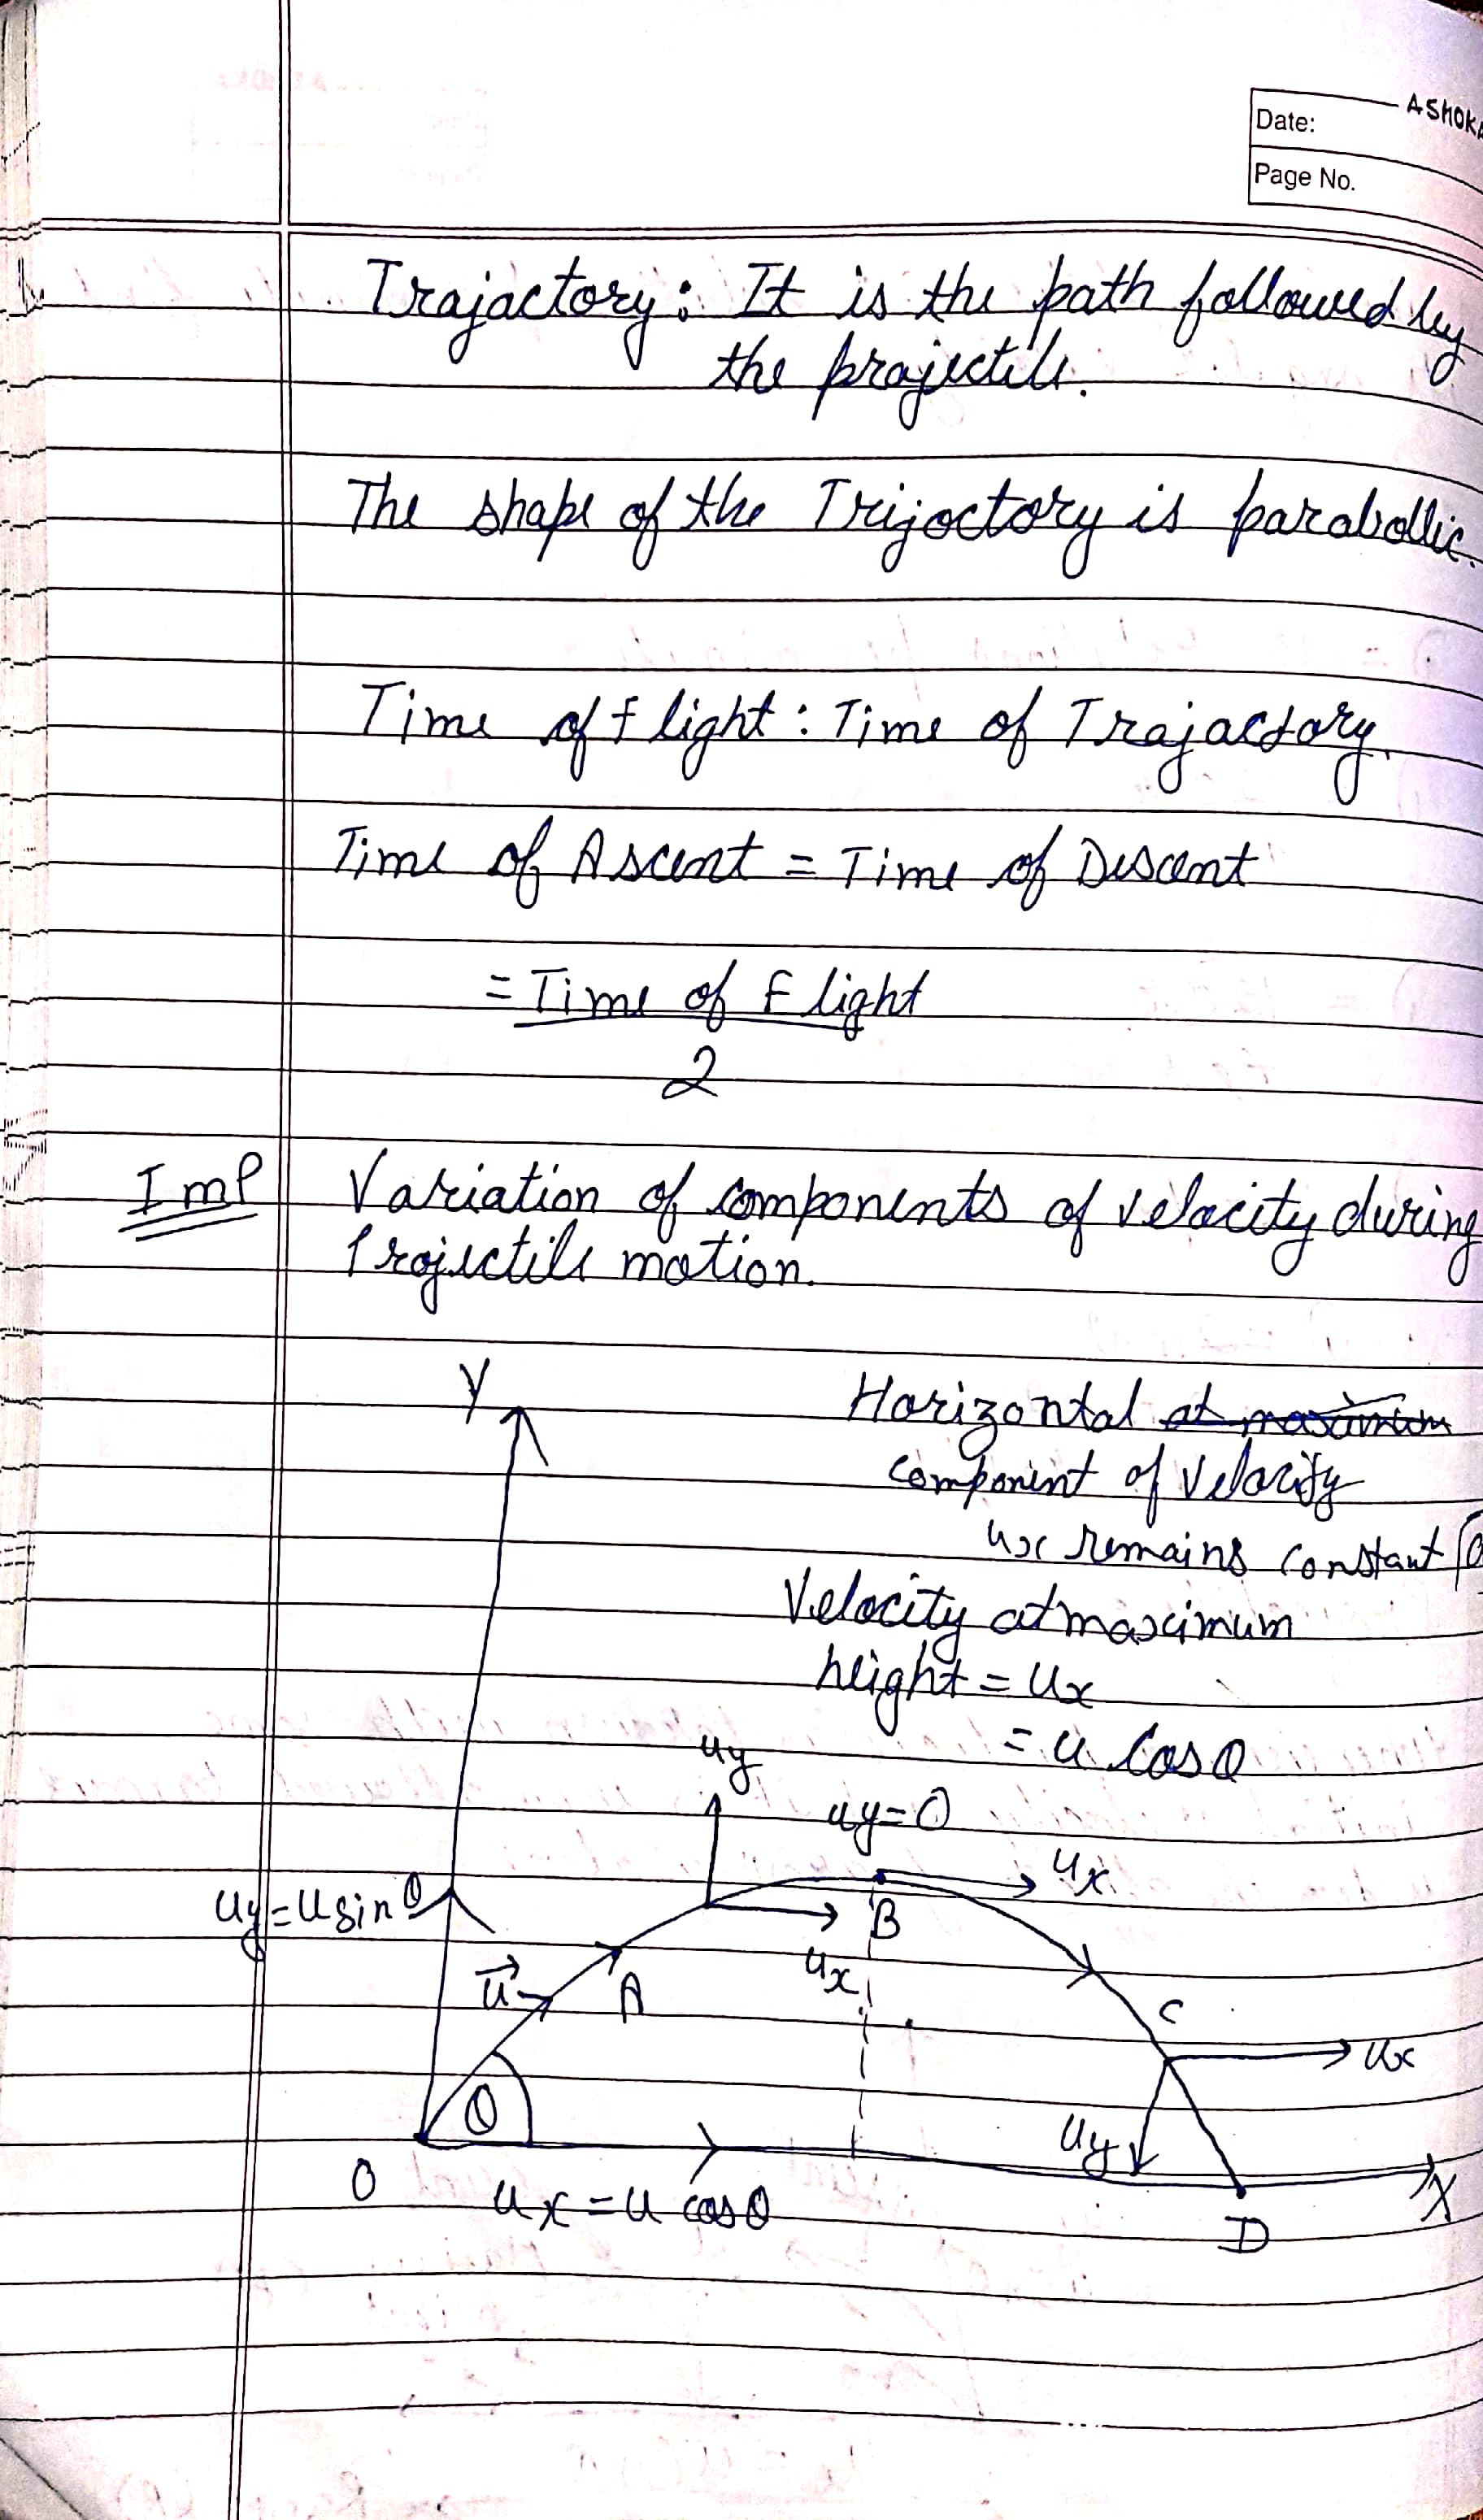 ASHOKA
Date:
Page No.
Trajactory: It is the path followed by
the projectile.
The shape of the Trijoctory is parabollic.
Time of flight: Time of Trajactory.
Time of Ascent = Time of Descent
= Time of Flight
2
Imp Variation of components of velocity during
Projectile motion.
Y
Horizontal at maximum
component of velocity
ux remains constant
Velocity at maximum
height = ux
= u cosθ
uy
uy=0
ux
uy=usinθ
B
ux
u⃗
A
C
ux
θ
uy
O
X
ux = u cosθ
D